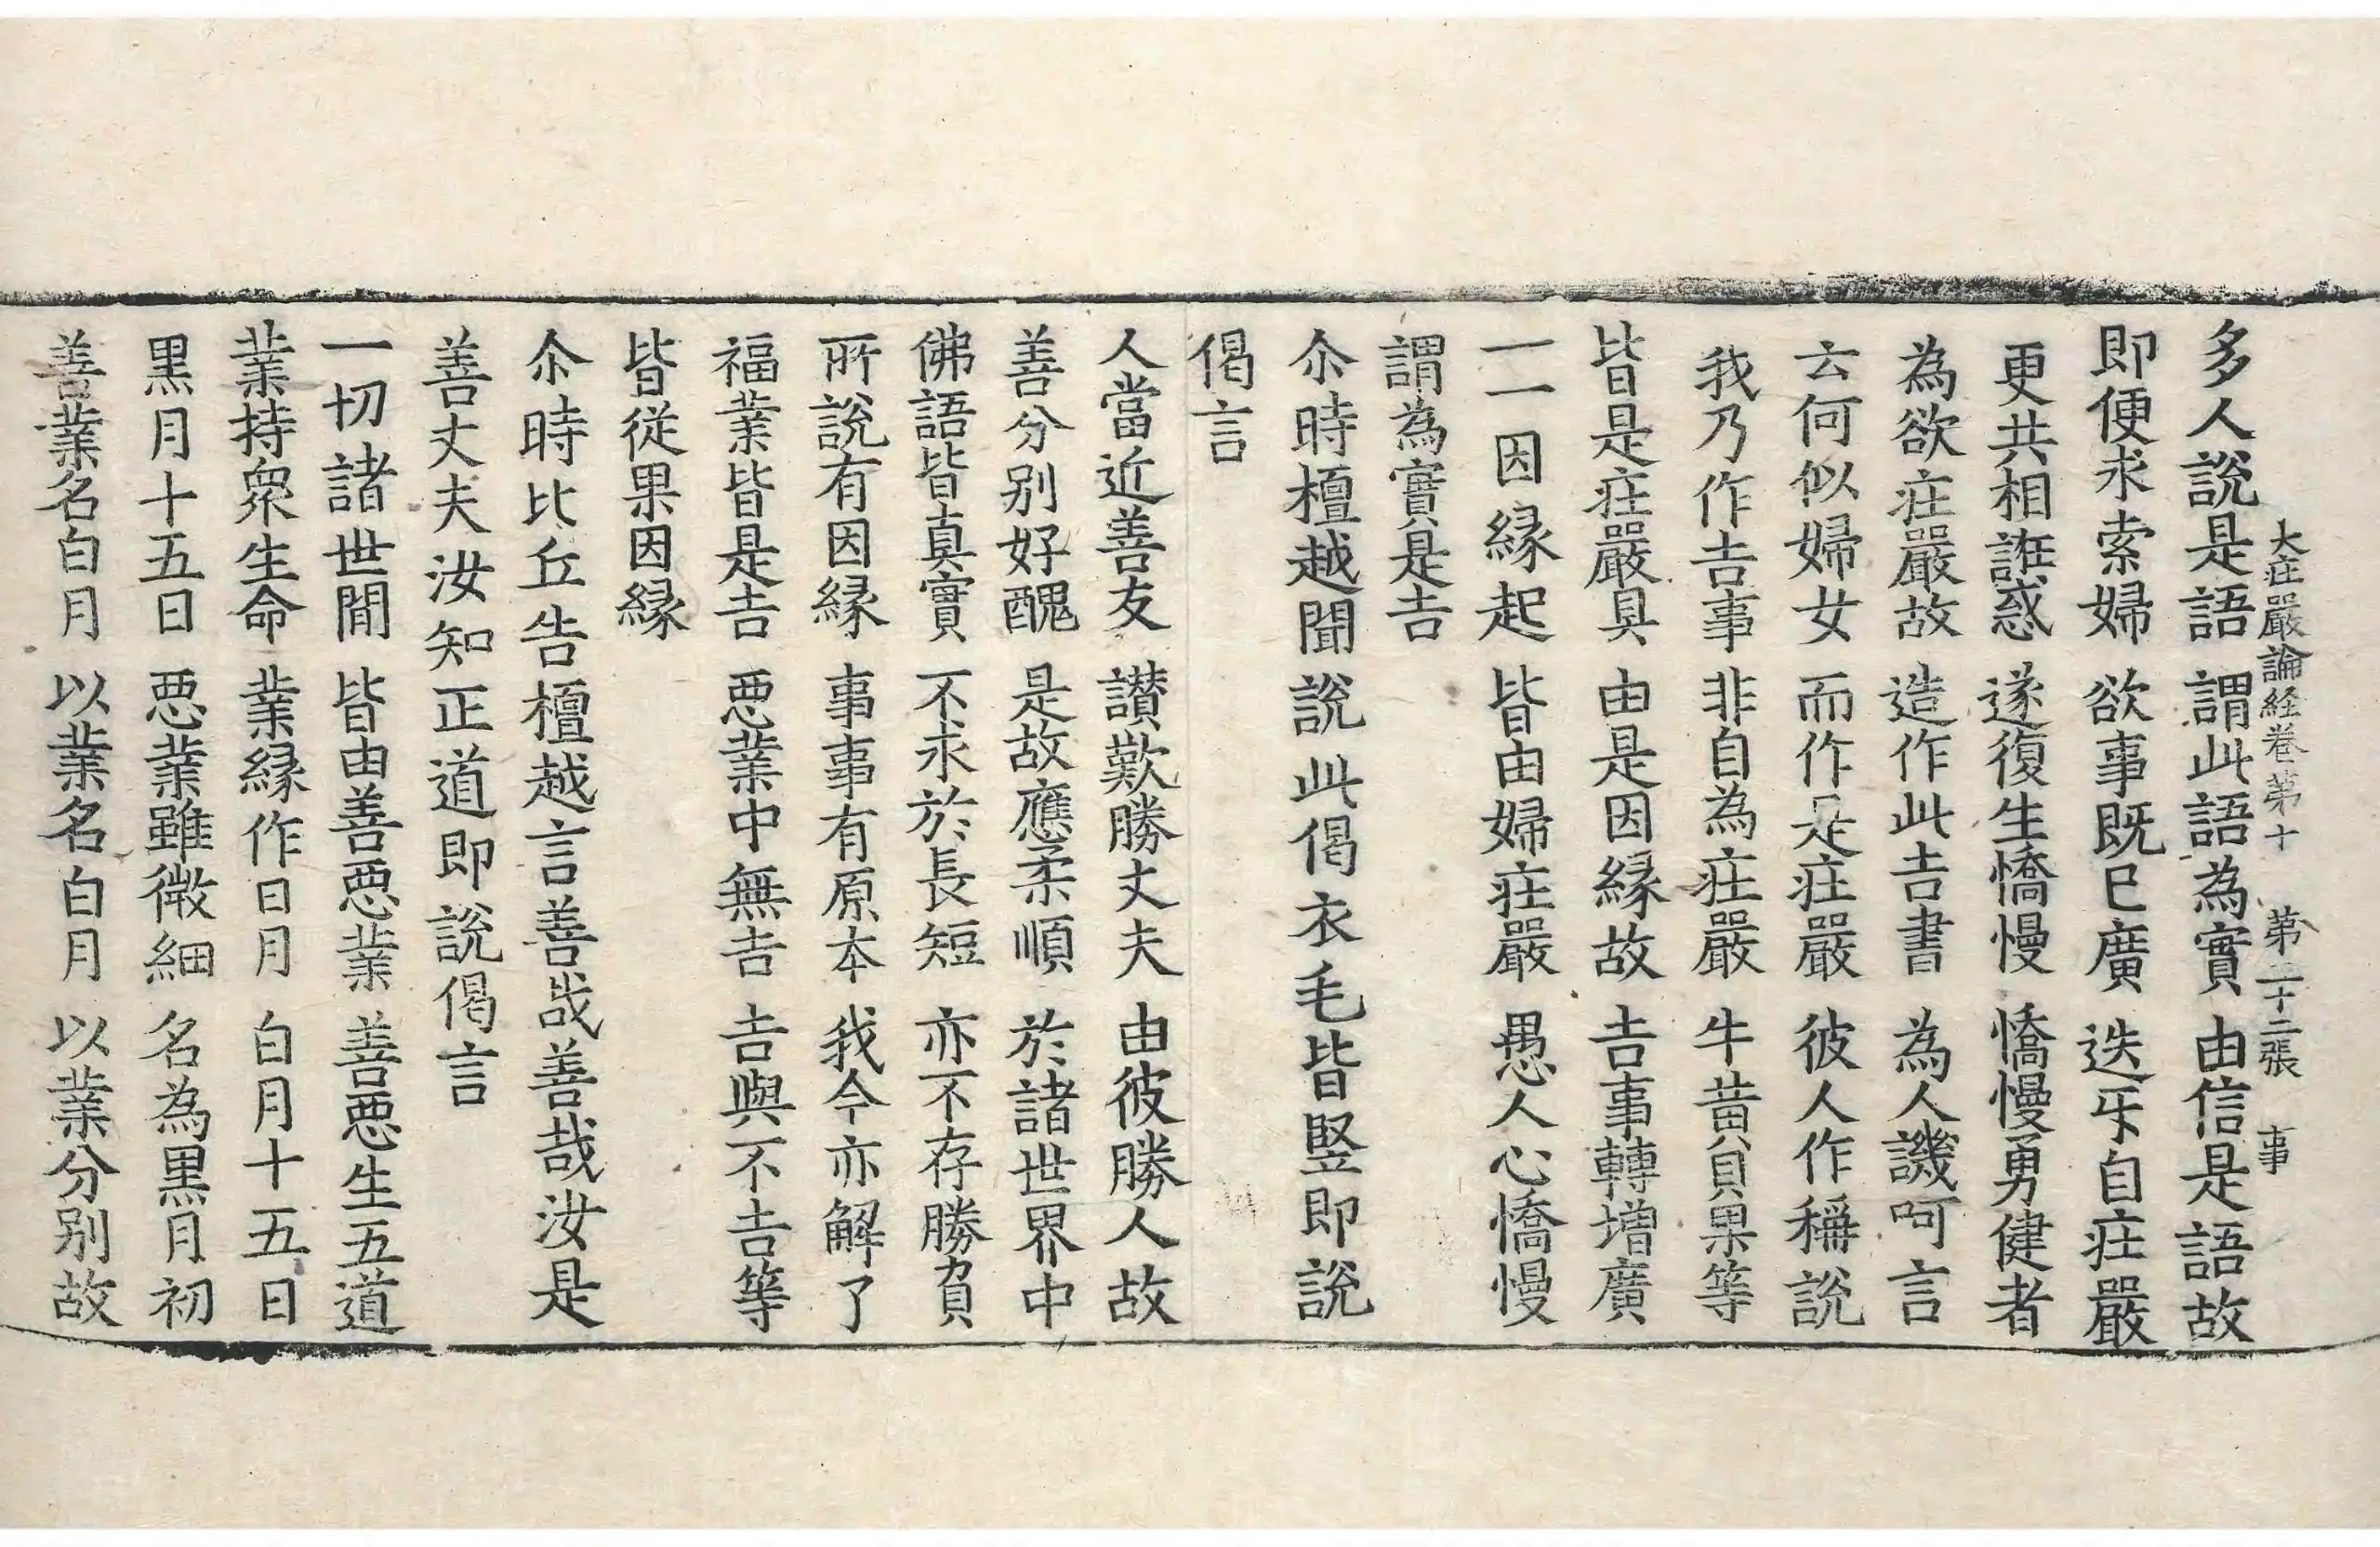 大庄嚴論経卷第十 第二十二張 事
多人說是語 謂此語為實 由信是語故
即便求索婦 欲事既已廣 迭㸦自庄嚴
更共相誑惑 遂復生憍慢 憍慢勇健者
為欲庄嚴故 造作此吉書 為人譏呵言
云何似婦女 而作是庄嚴 彼人作稱說
我乃作吉事 非自為庄嚴 牛黃貝果等
皆是庄嚴具 由是因緣故 吉事轉增廣
一一因緣起 皆由婦庄嚴 愚人心憍慢
謂為實是吉
尒時檀越聞說此偈衣毛皆竪即說
偈言
人當近善友 讃歎勝丈夫 由彼勝人故
善分別好醜 是故應柔順 於諸世界中
佛語皆真實 不求於長短 亦不存勝負
所說有因緣 事事有原本 我今亦解了
福業皆是吉 惡業中無吉 吉與不吉等
皆從果因緣
尒時比丘告檀越言善哉善哉汝是
善丈夫汝知正道即說偈言
一切諸世間 皆由善惡業 善惡生五道
業持衆生命 業緣作日月 白月十五日
黑月十五日 惡業雖微細 名為黑月初
善業名白月 以業名白月 以業分別故